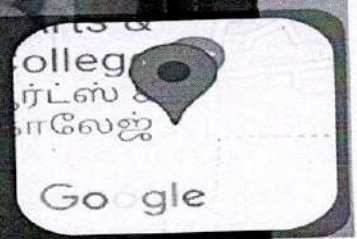 Arts &
College
ஆர்ட்ஸ் &
காலேஜ்
Google